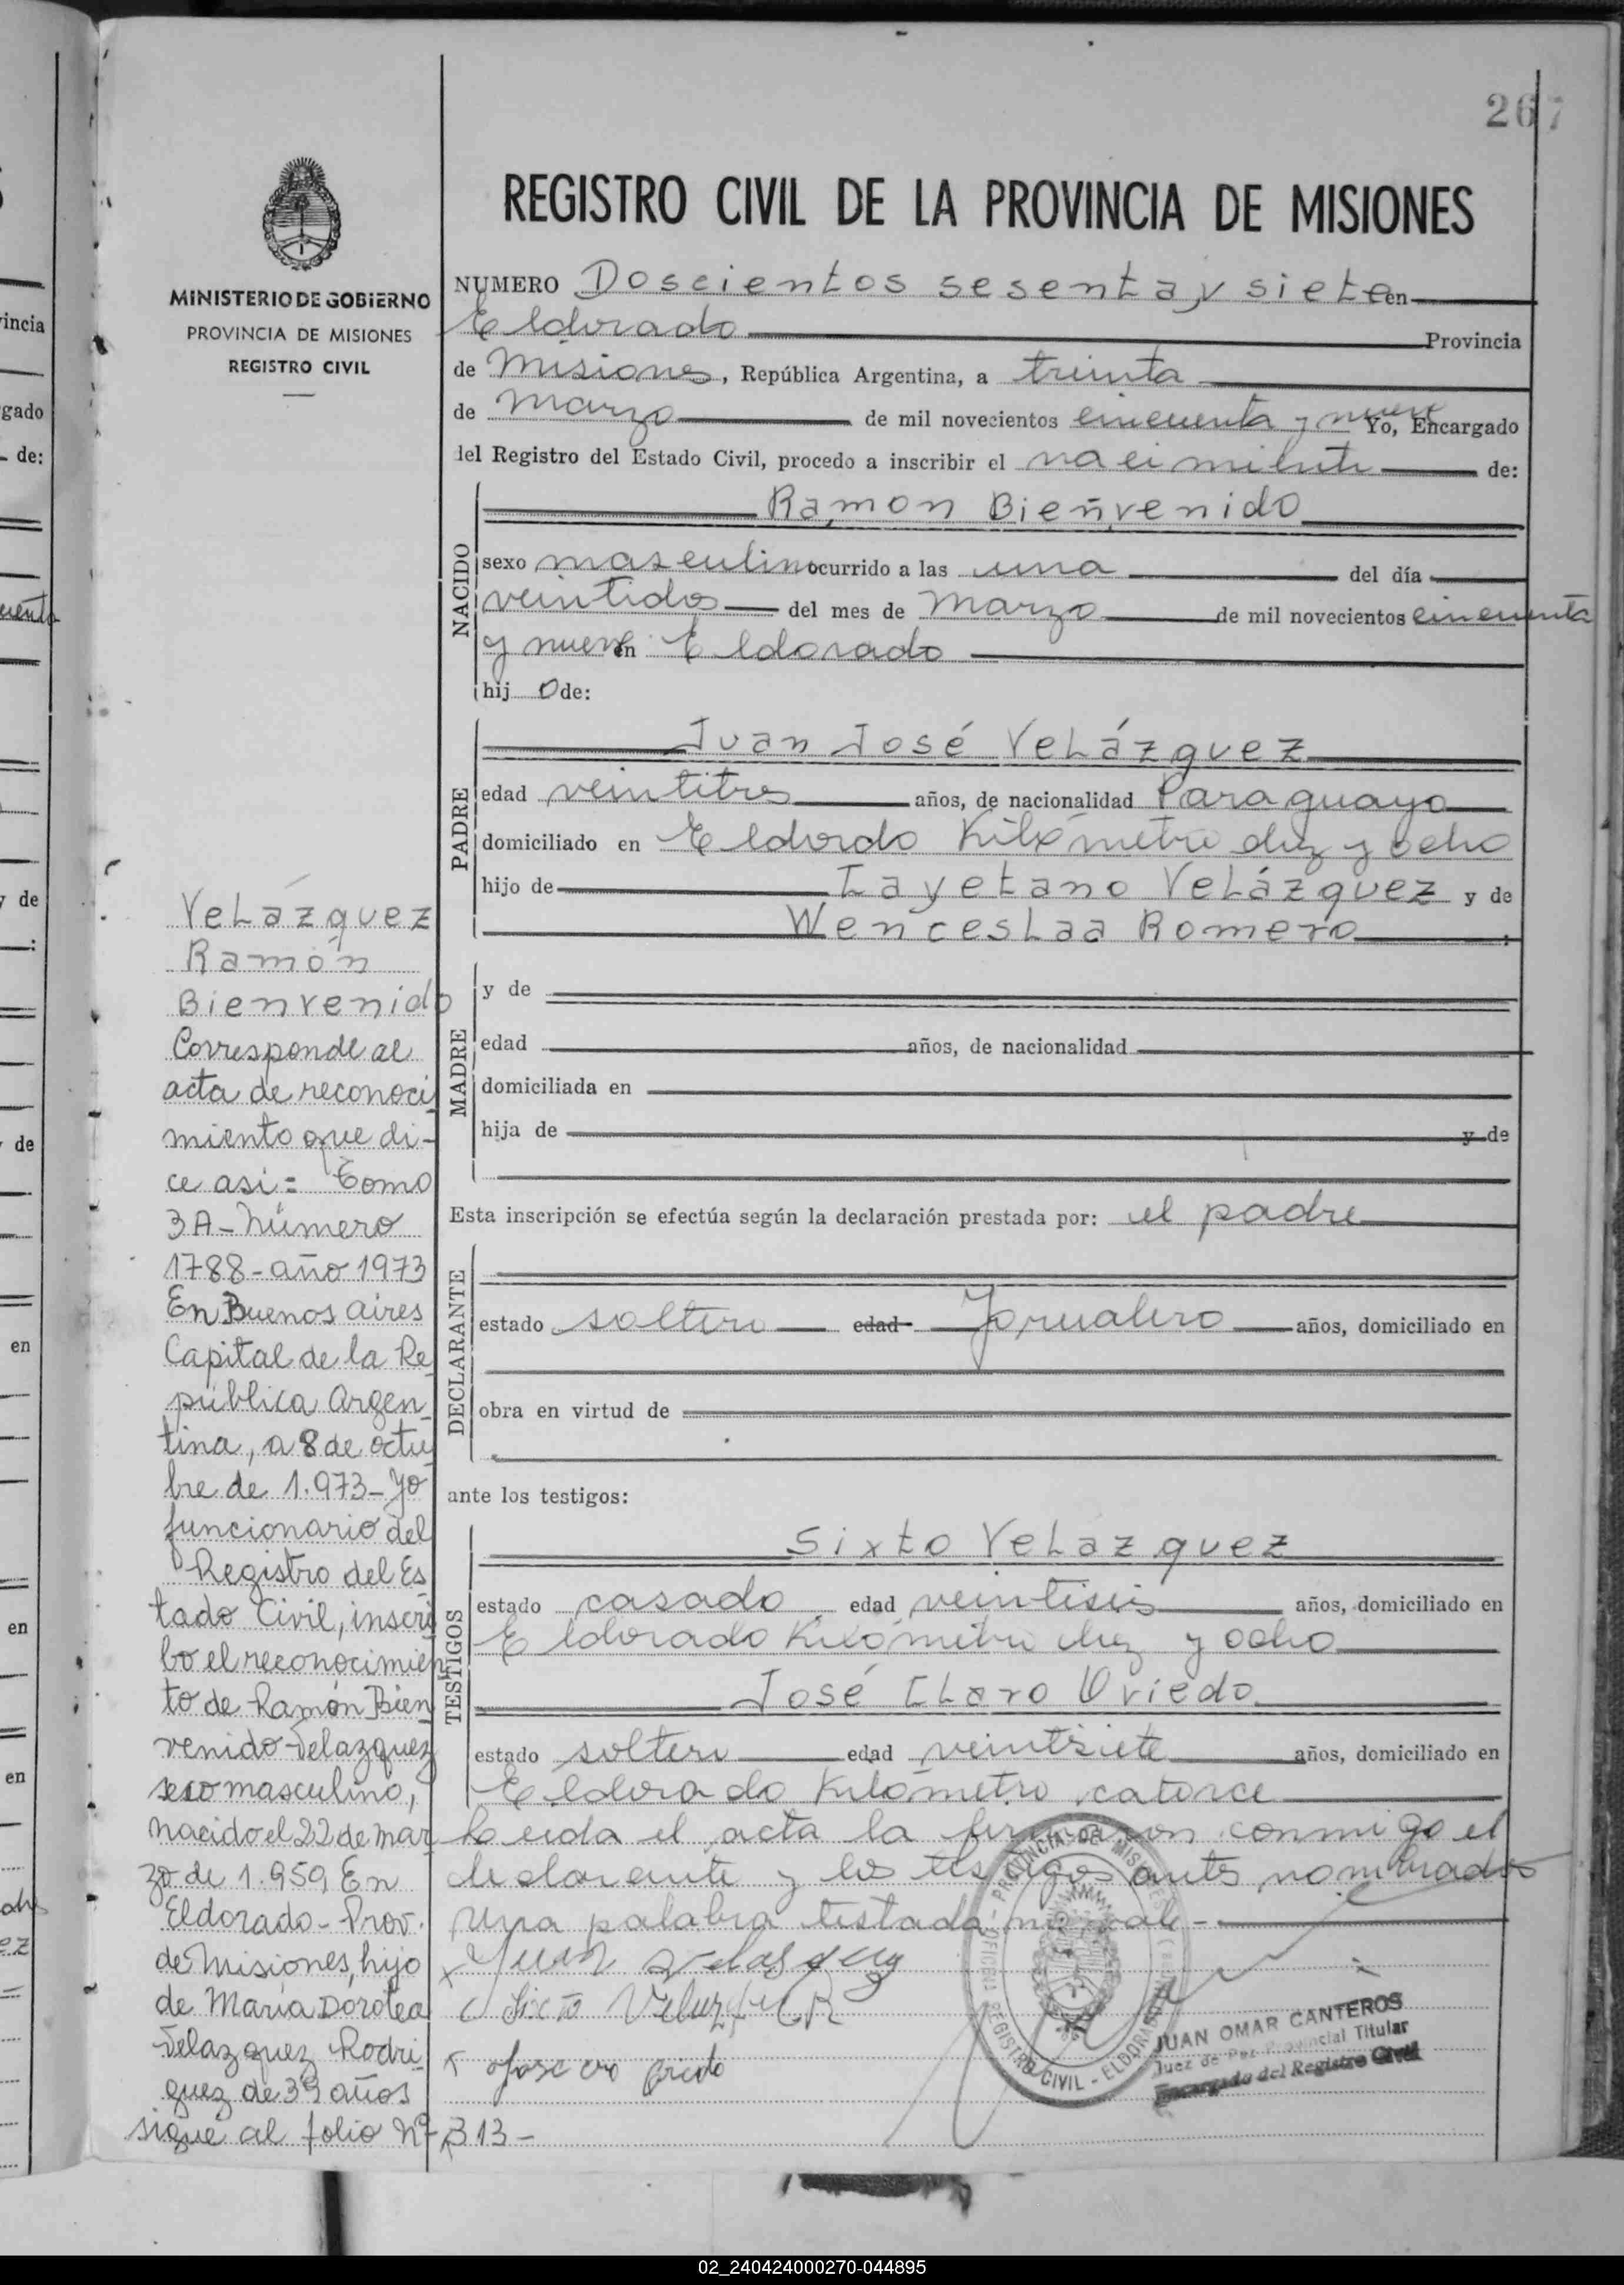 267
REGISTRO CIVIL DE LA PROVINCIA DE MISIONES
MINISTERIO DE GOBIERNO
PROVINCIA DE MISIONES
REGISTRO CIVIL
NUMERO Doscientos sesenta y siete en
Eldorado Provincia
de Misiones, República Argentina, a treinta
de Marzo de mil novecientos cincuenta y nueve Yo, Encargado
del Registro del Estado Civil, procedo a inscribir el nacimiento de:
Ramon Bienvenido
NACIDO
sexo masculino ocurrido a las una del día
veintidos del mes de Marzo de mil novecientos cincuenta
y nueve en Eldorado
hijo de:
Juan José Velázquez
PADRE
edad veintitres años, de nacionalidad Paraguayo
domiciliado en Eldordo Kilómetro diez y ocho
hijo de Cayetano Velázquez y de
Wenceslaa Romero
MADRE
y de
edad años, de nacionalidad
domiciliada en
hija de y de
Esta inscripción se efectúa según la declaración prestada por: el padre
DECLARANTE
estado soltero edad Jornalero años, domiciliado en
obra en virtud de
ante los testigos:
TESTIGOS
Sixto Velazquez
estado casado edad veintiseis años, domiciliado en
Eldorado Kilómetro diez y ocho
José Claro Oviedo
estado soltero edad veintisiete años, domiciliado en
Eldorado Kilómetro catorce
Leida el acta la firmaron conmigo el
declarante y los testigos antes nombrados
una palabra testada no vale-
Juan Velasquez
Sixto Velazquez R
Jose Oviedo
PROVINCIA DE MISIONES
OFICINA REGISTRO CIVIL - ELDORADO
JUAN OMAR CANTEROS
Juez de Paz Provincial Titular
Encargado del Registro Civil
Velázquez
Ramón
Bienvenido
Corresponde al
acta de reconoci
miento que di-
ce asi= Tomo
3A-Número
1788-año 1973
En Buenos Aires
Capital de la Re
pública Argen
tina, a 8 de octu
bre de 1.973-Yo
funcionario del
Registro del Es
tado Civil, inscri
bo el reconocimien
to de Ramón Bien
venido Velazquez
sexo masculino,
nacido el 22 de mar
zo de 1.959 En
Eldorado-Prov.
de Misiones, hijo
de Maria Dorotea
Velazquez Rodri
guez de 39 años
sigue al folio Nº 313-
incia
gado
de:
cuenta
y de
:
de
en
en
en
ez
02_240424000270-044895